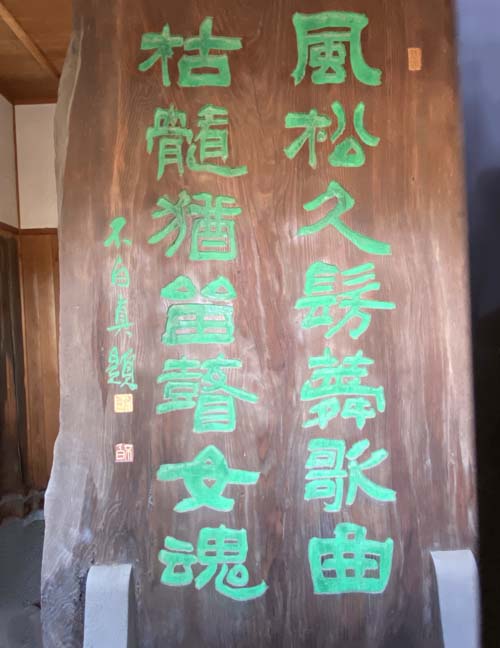 風松久髣舞歌曲
枯髓猶留瞽女魂
不白真題